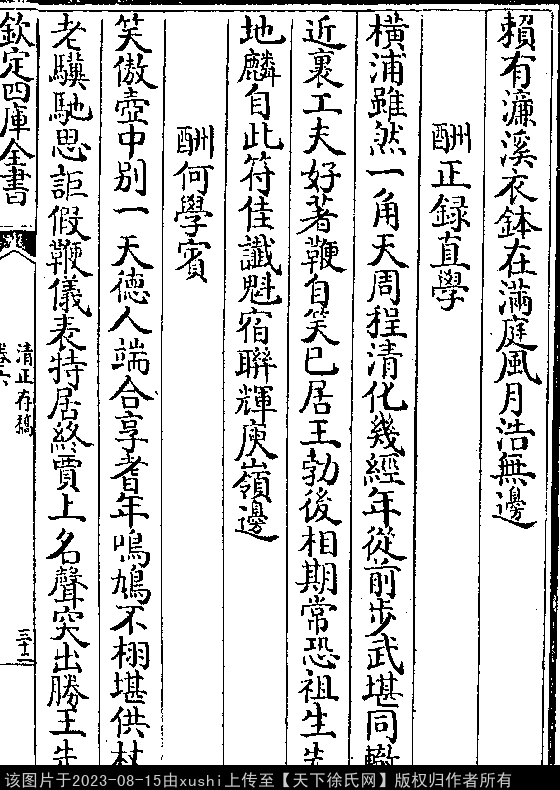 賴有濂溪衣鉢在滿庭風月浩無邊
酬正録直學
橫浦雖然一角天周程清化幾經年從前步武堪同轍
近裏工夫好著鞭自笑已居王勃後相期常恐祖生先
地麟自此符佳讖魁宿聯輝庾嶺邊
酬何學賓
笑傲壺中别一天德人端合享耆年鳴鳩不栩堪供杖
老驥馳思詎假鞭儀表特居終賈上名聲突出勝王先
欽定四庫全書
清正存稿
卷六
三十二
该图片于2023-08-15由xushi上传至【天下徐氏网】版权归作者所有